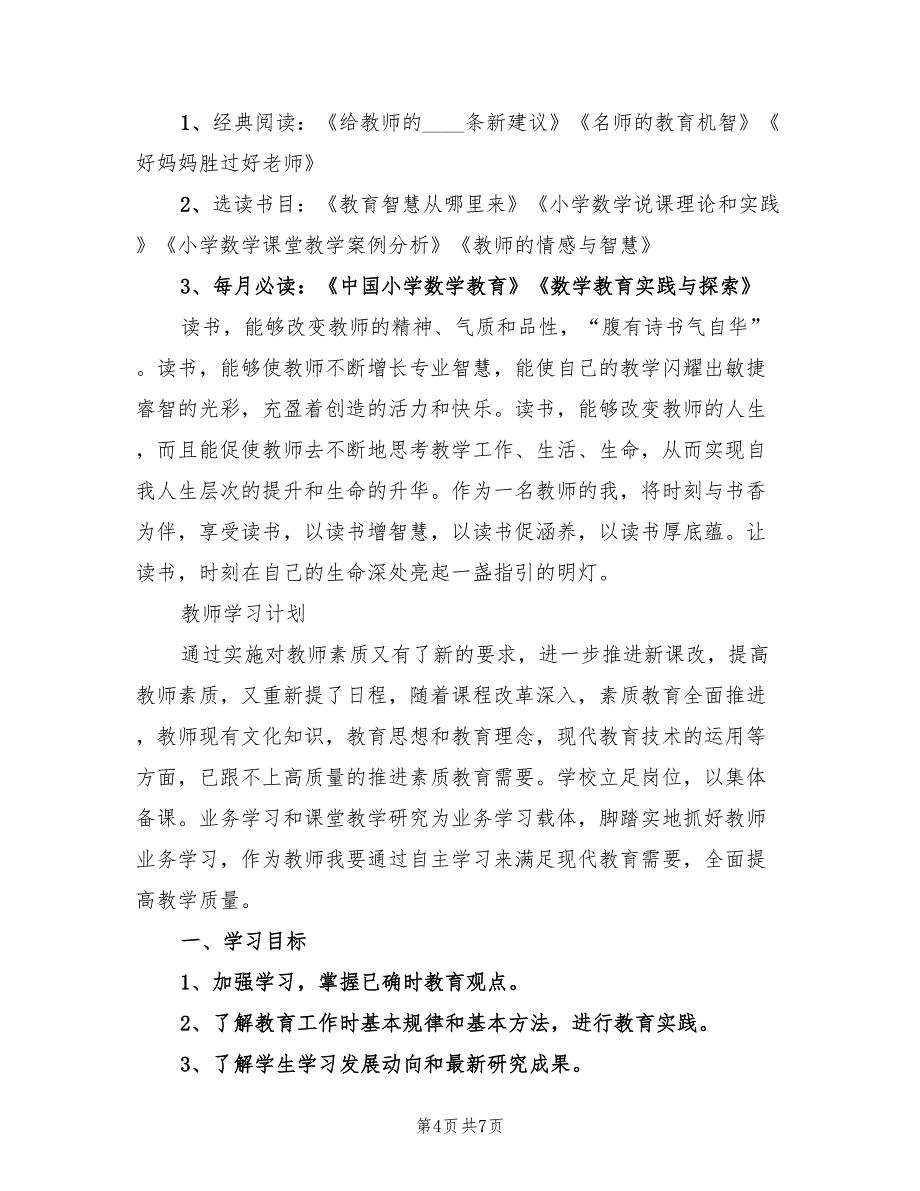 1、经典阅读：《给教师的____条新建议》《名师的教育机智》《
好妈妈胜过好老师》
2、选读书目：《教育智慧从哪里来》《小学数学说课理论和实践
》《小学数学课堂教学案例分析》《教师的情感与智慧》
3、每月必读：《中国小学数学教育》《数学教育实践与探索》
读书，能够改变教师的精神、气质和品性，“腹有诗书气自华”
。读书，能够使教师不断增长专业智慧，能使自己的教学闪耀出敏捷
睿智的光彩，充盈着创造的活力和快乐。读书，能够改变教师的人生
，而且能促使教师去不断地思考教学工作、生活、生命，从而实现自
我人生层次的提升和生命的升华。作为一名教师的我，将时刻与书香
为伴，享受读书，以读书增智慧，以读书促涵养，以读书厚底蕴。让
读书，时刻在自己的生命深处亮起一盏指引的明灯。
教师学习计划
通过实施对教师素质又有了新的要求，进一步推进新课改，提高
教师素质，又重新提了日程，随着课程改革深入，素质教育全面推进
，教师现有文化知识，教育思想和教育理念，现代教育技术的运用等
方面，已跟不上高质量的推进素质教育需要。学校立足岗位，以集体
备课。业务学习和课堂教学研究为业务学习载体，脚踏实地抓好教师
业务学习，作为教师我要通过自主学习来满足现代教育需要，全面提
高教学质量。
一、学习目标
1、加强学习，掌握已确时教育观点。
2、了解教育工作时基本规律和基本方法，进行教育实践。
3、了解学生学习发展动向和最新研究成果。
第4页共7页